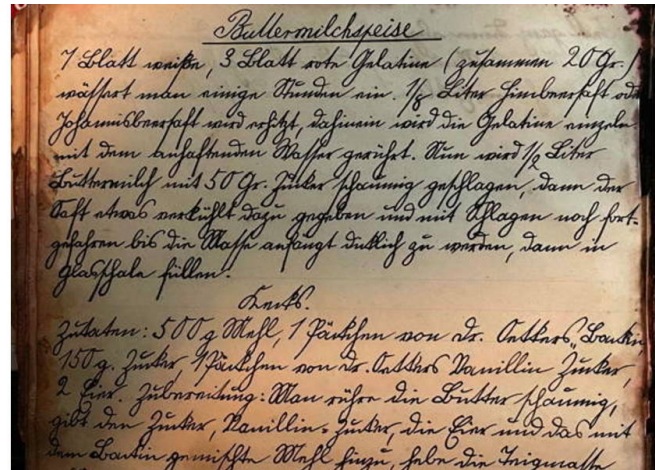 Buttermilchspeise
7 Blatt weiße, 3 Blatt rote Gelatine (zusammen 20 Gr.)
wässert man einige Stunden ein. 1/8 Liter Himbeersaft ode
Johannisbeersaft wird erhitzt, dahinein wird die Gelatine einzeln
mit dem anhaftenden Wasser gerührt. Nun wird 1/2 Liter
Buttermilch mit 50 Gr. Zucker schaumig geschlagen, dann der
Saft etwas verkühlt dazu gegeben und mit Schlagen noch fort-
gefahren bis die Masse anfängt dicklich zu werden, dann in
Glasschale füllen.
Keks.
Zutaten: 500 g Mehl, 1 Päckchen von Dr. Oetkers „Backin
150 g. Zucker, 1 Päckchen von Dr. Oetkers Vanillin Zucker,
2 Eier. Zubereitung: Man rühre die Butter schaumig,
gibt den Zucker, Vanillin-Zucker, die Eier und das mit
dem Backin gemischte Mehl hinzu, hebe die Teigmasse